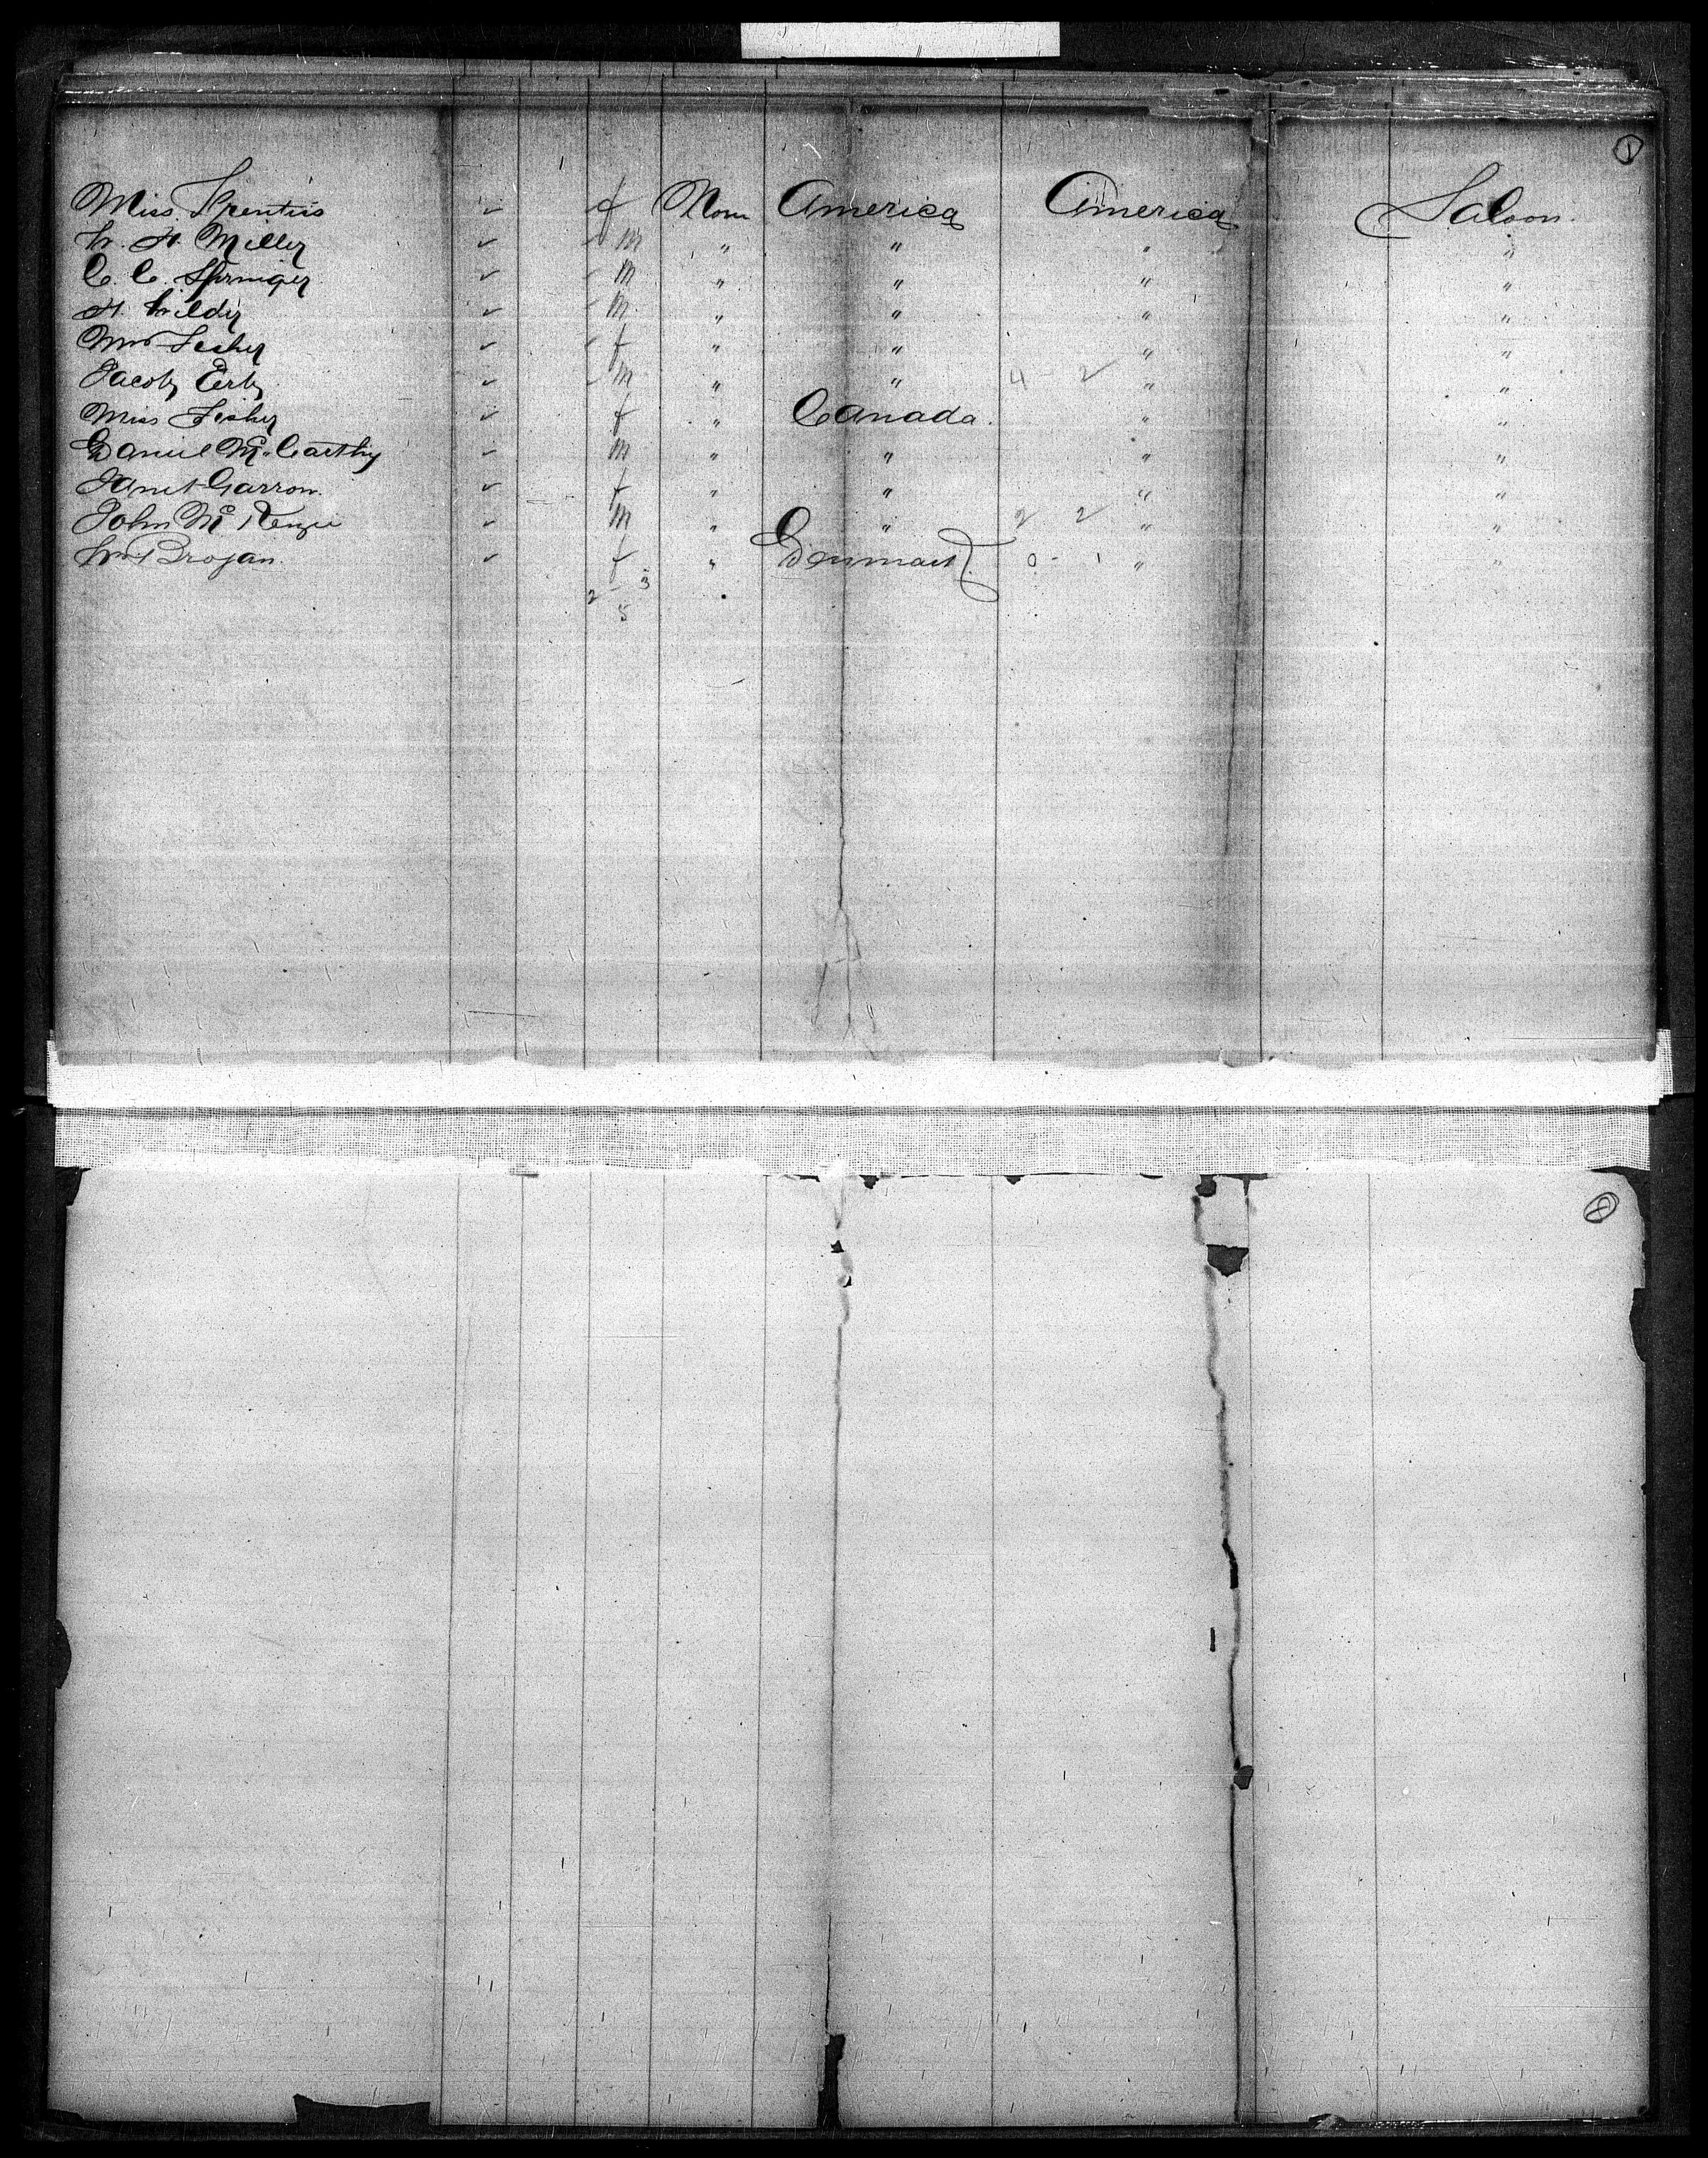 1
Miss Prentiss ✓ f None America America Saloon.
W. H. Miller ✓ m " " " "
C. C. Springer ✓ m " " " "
H. Wilder ✓ m " " " "
Mrs Fisher ✓ f " " " "
Jacob Eerb ✓ m " " 4 - 2 " "
Miss Fisher ✓ f " Canada. " "
Daniel McCarthy ✓ m " " " "
Janet Garron. ✓ f " " " "
John McKenzie ✓ m " " 2 2 " "
Brogan. ✓ f " Denmark 0 - 1 " "
2 - 3
5